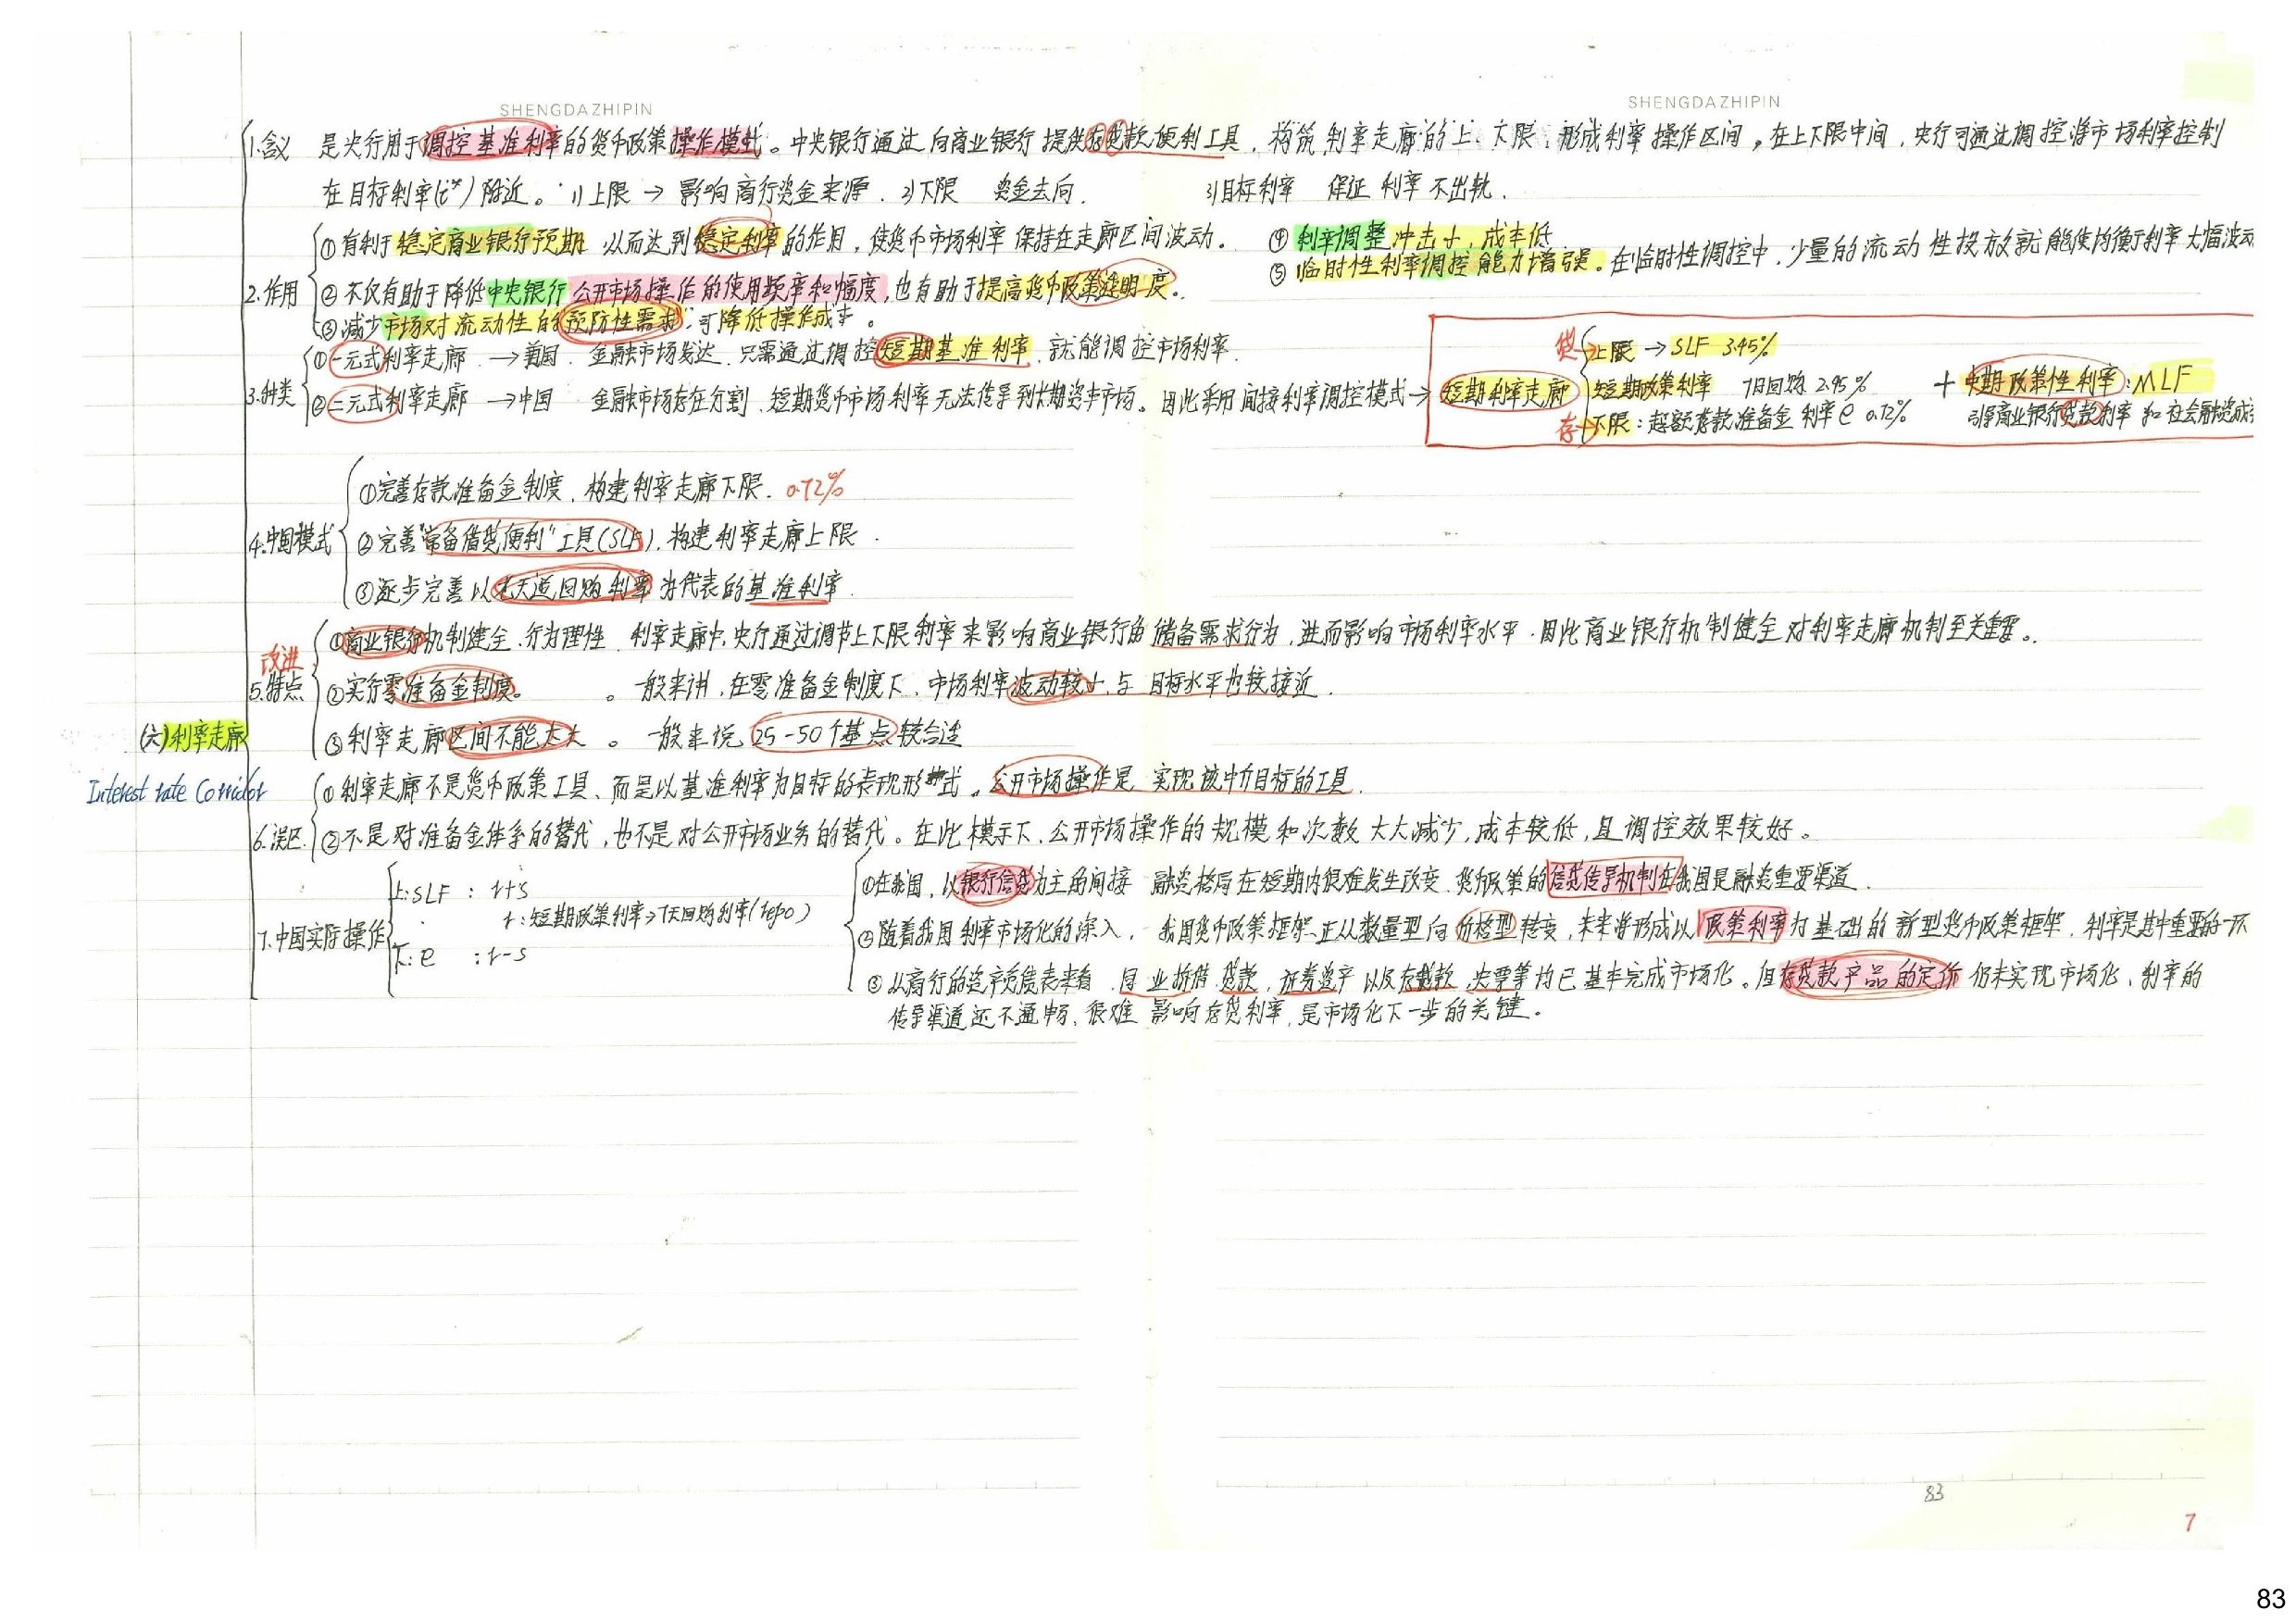 SHENGDAZHIPIN
SHENGDAZHIPIN
1.含义 是央行用于调控基准利率的货币政策操作模式。中央银行通过向商业银行提供存贷款便利工具，构筑利率走廊的上、下限，形成利率操作区间，在上下限中间，央行可通过调控将市场利率控制
在目标利率(i*)附近。 1)上限 → 影响商行资金来源. 2)下限 资金去向. 3)目标利率 保证利率不出轨.
2.作用
①有利于稳定商业银行预期 从而达到稳定利率的作用，使货币市场利率保持在走廊区间波动。
②不仅有助于降低中央银行公开市场操作的使用频率和幅度，也有助于提高货币政策透明度。
③减少市场对流动性的"预防性需求"，可降低操作成本。
④利率调整冲击小，成本低
⑤临时性利率调控能力增强。在临时性调控中，少量的流动性投放就能使均衡利率大幅波动
3.种类
①一元式利率走廊 → 美国. 金融市场发达. 只需通过调控短期基准利率，就能调控市场利率.
②二元式利率走廊 → 中国 金融市场存在分割，短期货币市场利率无法传导到长期资本市场。因此采用间接利率调控模式→
短期利率走廊
贷→上限 → SLF 3.45%
短期政策利率 7日回购 2.95%
存→下限：超额存款准备金利率e 0.72%
+ 中期政策性利率：MLF
引导商业银行贷款利率和社会融资成
4.中国模式
①完善存款准备金制度，构建利率走廊下限. 0.72%
②完善"常备借贷便利"工具(SLF)，构建利率走廊上限.
③逐步完善以七天逆回购利率为代表的基准利率.
改进
5.特点
①商业银行机制健全、行为理性. 利率走廊中，央行通过调节上下限利率来影响商业银行的储备需求行为，进而影响市场利率水平.因此商业银行机制健全对利率走廊机制至关重要。
②实行零准备金制度。 一般来讲，在零准备金制度下，市场利率波动较小，与目标水平也较接近.
③利率走廊区间不能太大。 一般来说 25-50个基点较合适
(六)利率走廊
Interest rate Corridor
6.误区
①利率走廊不是货币政策工具、而是以基准利率为目标的表现形式。公开市场操作是实现该中介目标的工具.
②不是对准备金体系的替代，也不是对公开市场业务的替代。在此模示下，公开市场操作的规模和次数大大减少，成本较低，且调控效果较好。
7.中国实际操作
上:SLF : r+s
r:短期政策利率→7天回购利率(repo)
下:e : r-s
①在我国，以银行信贷为主的间接融资格局在短期内很难发生改变，货币政策的信贷传导机制在我国是融资重要渠道.
②随着我国利率市场化的深入，我国货币政策框架正从数量型向价格型转变，未来将形成以政策利率为基础的新型货币政策框架，利率是其中重要的一环
③从商行的资产负债表来看，同业拆借、贷款、证券资产以及存款、央票等均已基本完成市场化。但存贷款产品的定价仍未实现市场化，利率的
传导渠道还不通畅、很难影响存贷利率，是市场化下一步的关键。
83
7
83